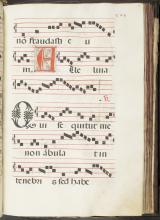 nō fraudasti e u
m. Alle luia
Qui sequitur me
non ābulat in
tenebris sed habe